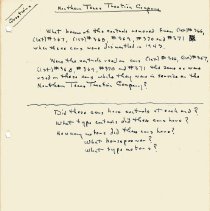 Northern Texas Traction Company
What became of the controls removed from (10) #366,
(10) #367, (10) #368, #369, #370 and #371
when these cars were dismantled in 1943.
Were the controls used on cars (10) #366, (10) #367,
(10) #368, #369, #370 and #371 the same as were
used on these cars while they were in service on the
Northern Texas Traction Company?
Did these cars have controls at each end?
What type controls did these cars have?
How many motors did these cars have?
Horsepower?
What type motors?